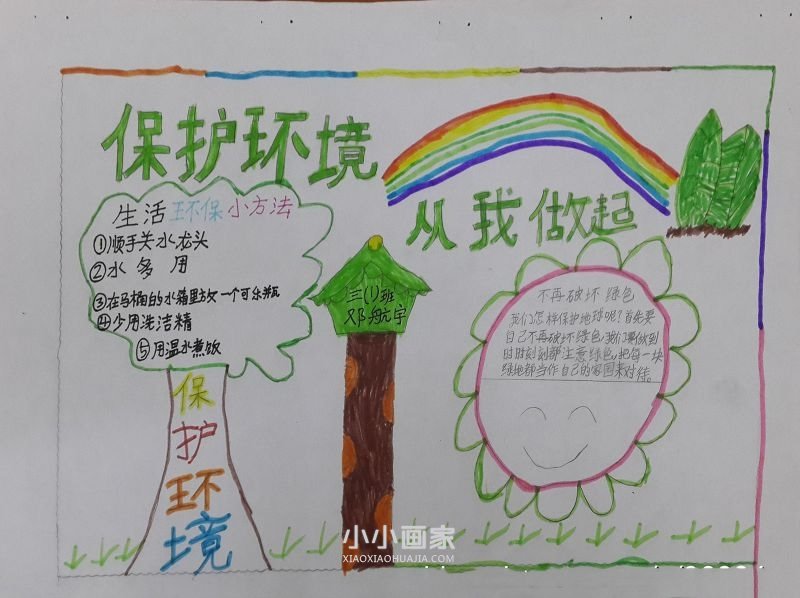 保护环境
从我做起
生活环保小方法
①顺手关水龙头
②水多用
③在马桶的水箱里放一个可乐瓶
④少用洗洁精
⑤用温水煮饭
保
护
环
境
三(1)班
邓航宇
不再破坏绿色
我们怎样保护地球呢?首先要
自己不再破坏绿色,我们要做到
时时刻刻都注意绿色,把每一块
绿地都当作自己的家园来对待。
小小画家
XIAOXIAOHUAJIA.COM